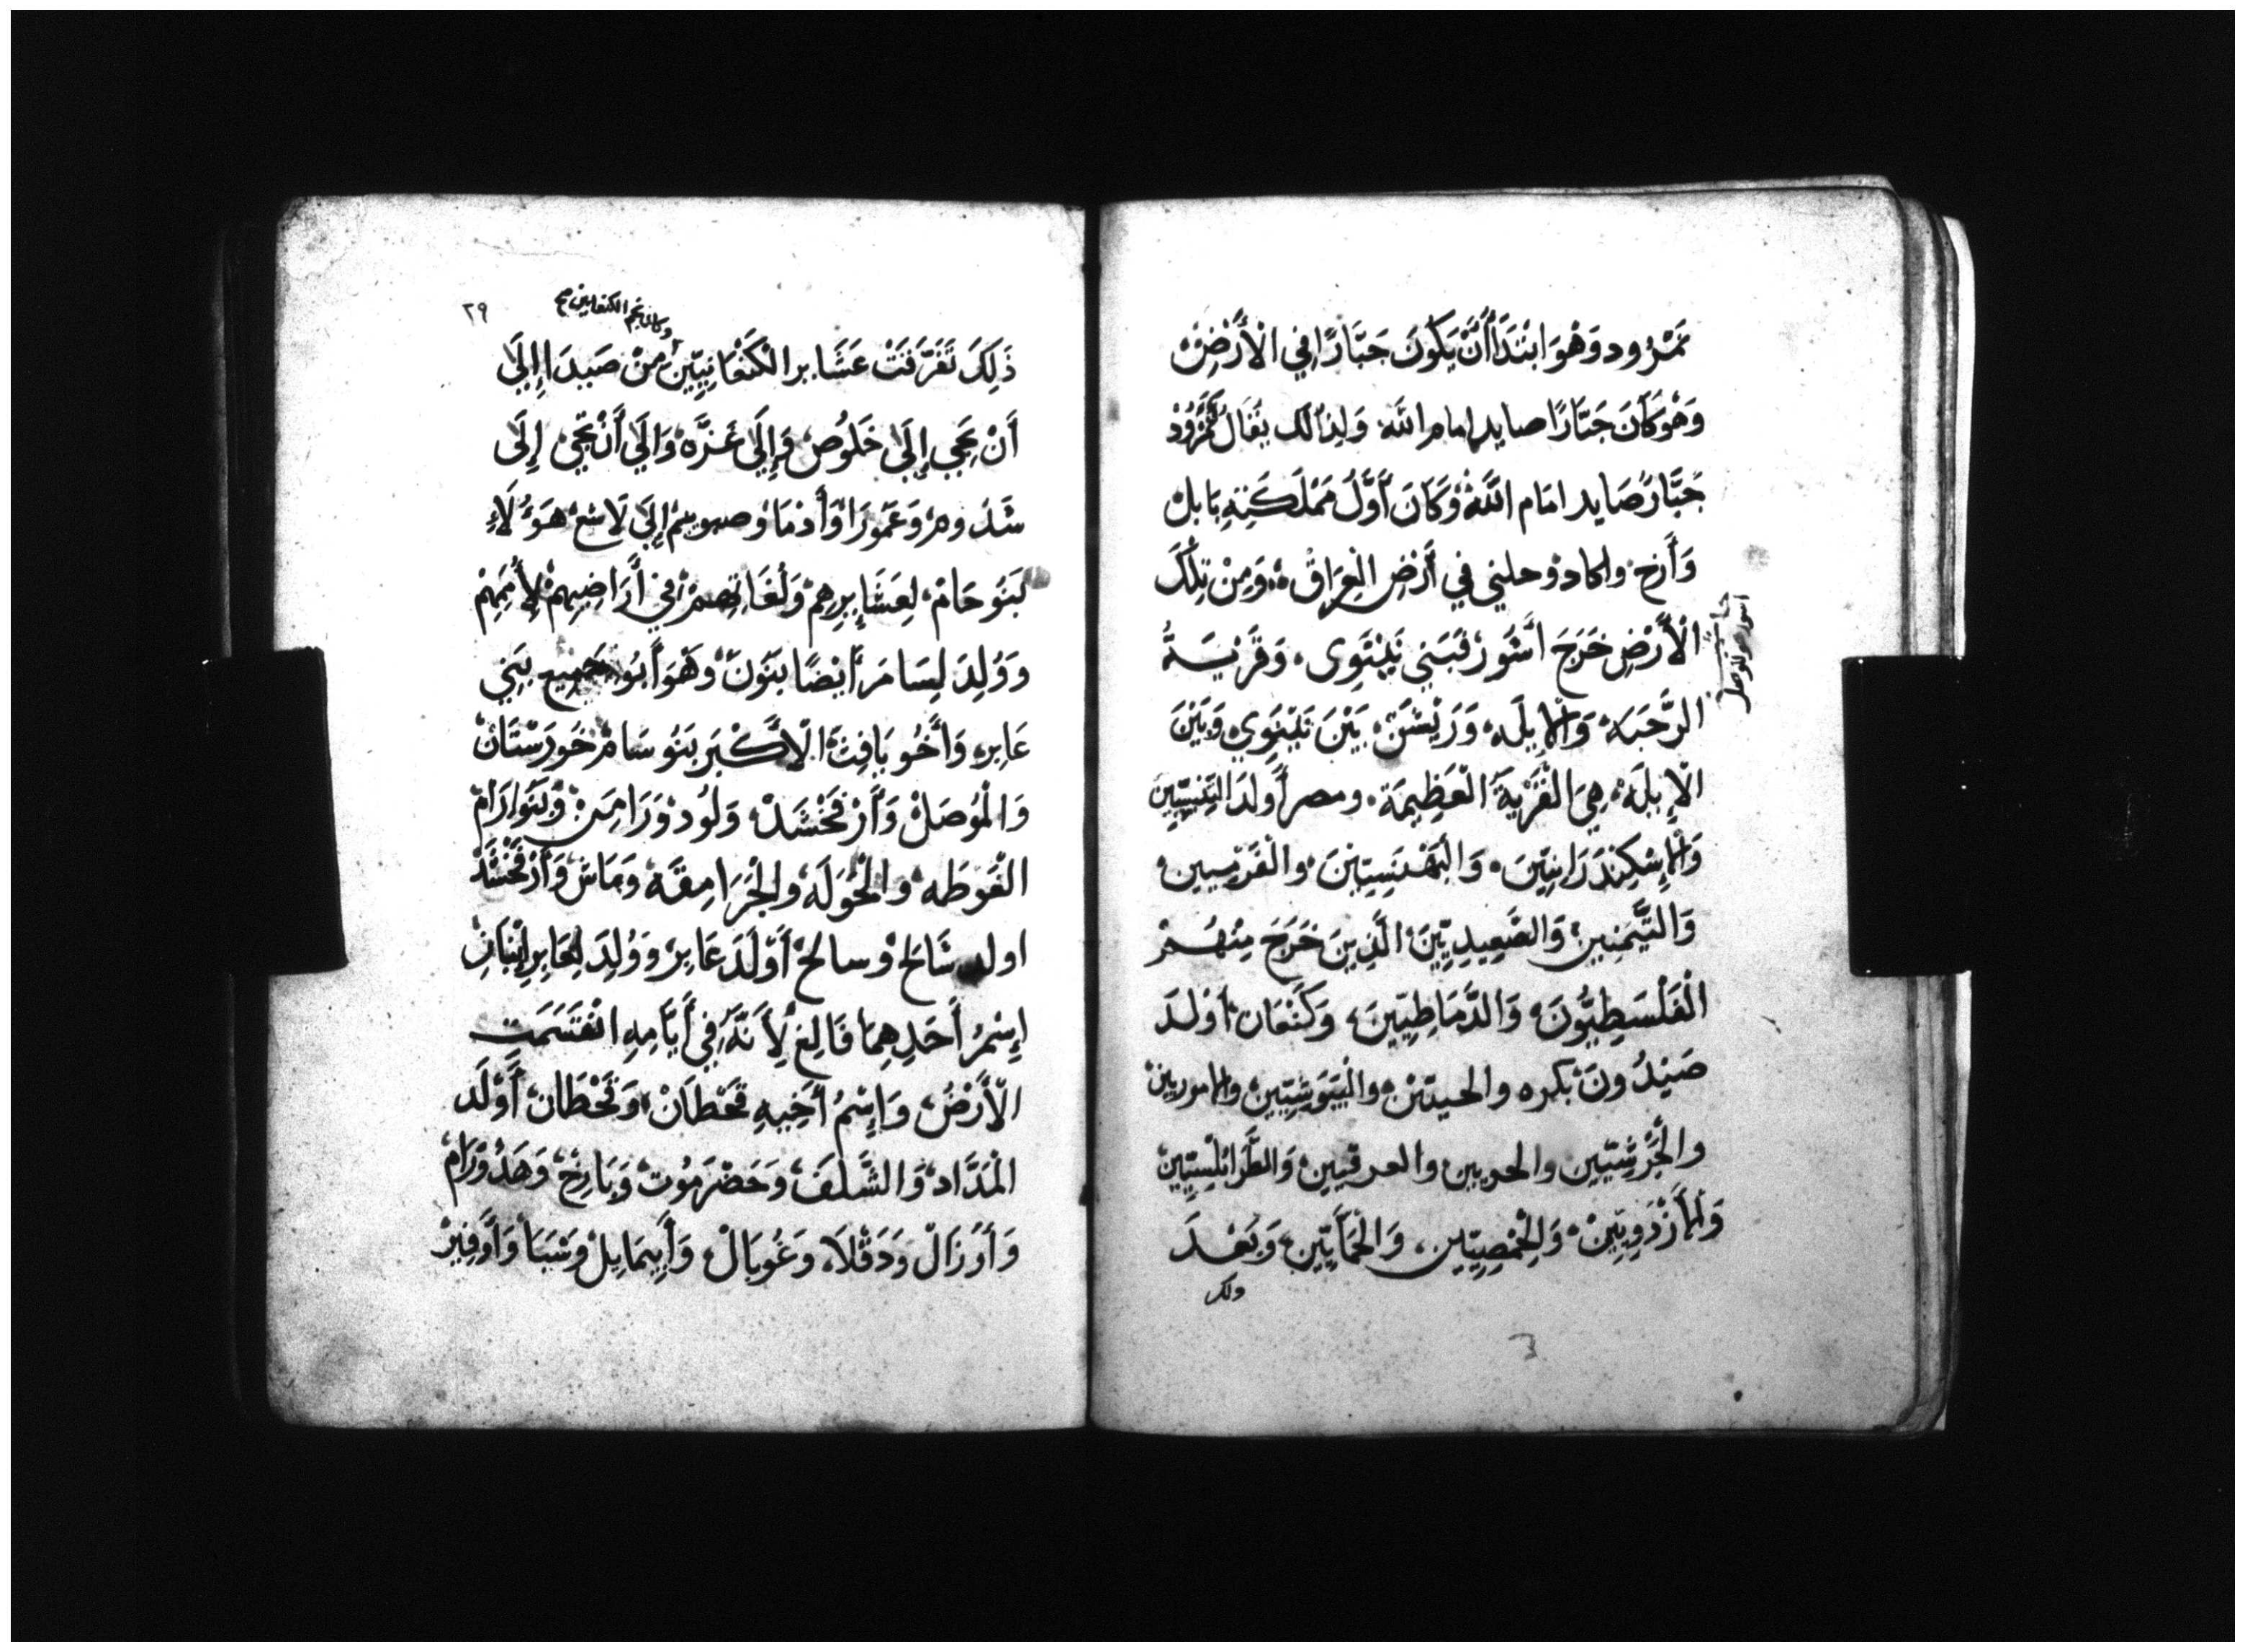 نَمْرُود وَهْوَ ابْتَدَأَ أَنْ يَكُونَ جَبَّارًا فِي الْأَرْضِ
وَهْوَ كَانَ جَبَّارًا صايد امام الله وَلِذَلك يُقَالُ كَنَمْرُودْ
جَبَّارٌ صَايد امَام اللَّهِ وَكَانَ أَوَّلُ مَمْلَكَتِهِ بَابل
وَأَرخ واكاد وحلني في أَرْضِ الْعِرَاقْ وَمِنْ تِلْكَ
الْأَرْضِ خَرَجَ أَشُورْ فَبَنِي نَيْنَوِى وَقَرْيَةُ
الرَّحَبَه وَالإبلَه وَرَيْسَنْ بَيْنَ نَيْنَوِي وَبَيْنَ
الْإِبلَه هِيَ الْقَرْيَةَ الْعَظِيمَة ومصر أَولَدَ التِنِيسِّيِينَ
وَالإِسْكِنْدَرَانِيِّينَ وَالْبَهْنَسِيِّينَ والْفَرْمِيين
وَالْيَمَنِيين وَالصَّعِيدِيِّينَ الَّذِينَ خَرَجَ مِنْهُمْ
الْفَلَسْطِيُّونَ وَالدَّمَاطِيِّينَ وَكَنْعَان أَوْلَدَ
صَيْدُونَ بكره والحيتيْن والْيَبَوسِيِّين والاموريين
والْجَرْشِيِّين والحويين والعرقيين وَالطَّرَابُلْسِيِّينْ
وَالأَزْدَوِيِّينْ وَالْحِمْصِيِّين وَالْحَمَأَيِّين وَبَعْدَ
ذلك
٢٩
وكان تخم الكنعانيين صح
ذَلِكَ تَفَرَّقَتْ عَشَاير الْكَنْعَانِيِّينَ مِنْ صَيدَا إِلَى
أَنْ تَجِي إِلَى خَلُوص وَإِلَى غَزَّه وَالَى أَنْ تَجِي إِلَى
سَدُوم وَعَمُورَا وَأَدْمَا وصبوييم إِلَى لَاسَع هَؤُلَاءِ
بَنُو حَامْ لِعَشَايِرِهِمْ وَلُغَاتِهِمْ فِي أَرَاضِيهِمْ لِأُمَمِهِمْ
وَوُلِدَ لِسَامَ أَيْضًا بَنُونْ وَهْوَ أَبُو جَمِيع بَنِي
عَابِر وَأَخُو يَافِثَ الْأَكْبَر بَنُو سَامْ خَورَسْتَانْ
وَالْمُوصَلْ وَأَرْفَخْشَدْ وَلُودْ وَرَامِين وَبَنُو ارَامْ
الْغَوطَه والْحُولَه والْجَرَامِقَه وَمَاسْ وَأَرْفَخْشَدْ
اولد شَالَخ وسالخ أَوْلَدَ عَابِرْ وَوُلِدَ لِعَابِر إِبْنَانِ
إِسْمُ أَحَدِهِمَا فَالِغْ لِأَنَّهُ فِي أَيَّامِهِ انْقَسَمَت
الْأَرْضُ وَإِسْمُ أَخِيهِ قَحْطَانْ وَقَحْطَانْ أَوْلَدَ
الْمَدَّاد وَالشَّلَفَ وَحَضْرَمُوت وَيَارِخْ وَهَدُورَامْ
وَأَوْزَالْ وَدَقْلَا وَعُوبَالْ وَأَبِيمَايِلْ وَشَبَا وَأَوْفِيرْ